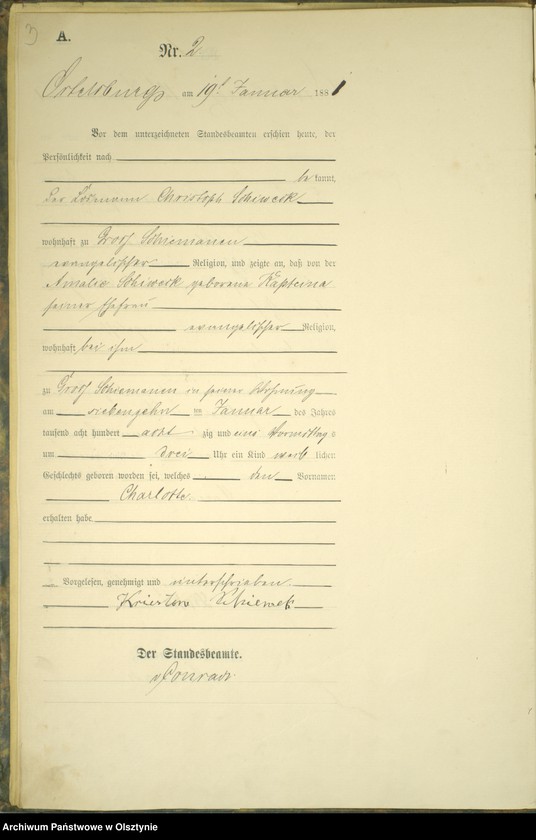 3
A.
Nr. 2
Ortelsburg am 19t Januar 1881
Vor dem unterzeichneten Standesbeamten erschien heute, der
Persönlichkeit nach
bekannt,
der Losmann Christoph Schiweck
wohnhaft zu Groß Schiemanen
evangelischer Religion, und zeigte an, daß von der
Amalie Schiweck geborene Kapteina
seiner Ehefrau
evangelischer Religion,
wohnhaft bei ihm
zu Groß Schiemanen in seiner Wohnung
am siebenzehn ten Januar des Jahres
tausend acht hundert acht zig und eins Vormittags
um drei Uhr ein Kind weib lichen
Geschlechts geboren worden sei, welches den Vornamen
Charlotte
erhalten habe
Vorgelesen, genehmigt und unterschrieben
Schiewek
Der Standesbeamte.
Conrad
Archiwum Państwowe w Olsztynie